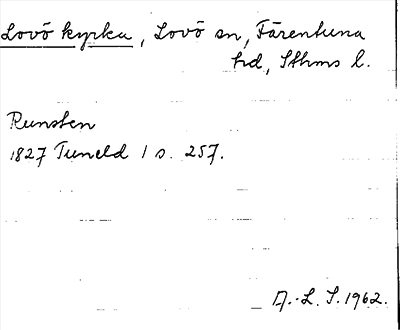 Lovö kyrka, Lovö sn, Färentuna
hd, Sthms l.
Runsten
1827 Tuneld I s. 257.
A.-L. S. 1962.